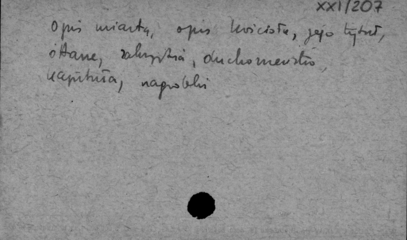 XXI/207
opis miasta, opis kościoła, jego tytuł,
ołtarze, zakrystia, duchowieństwo,
kapituła, nagrobki